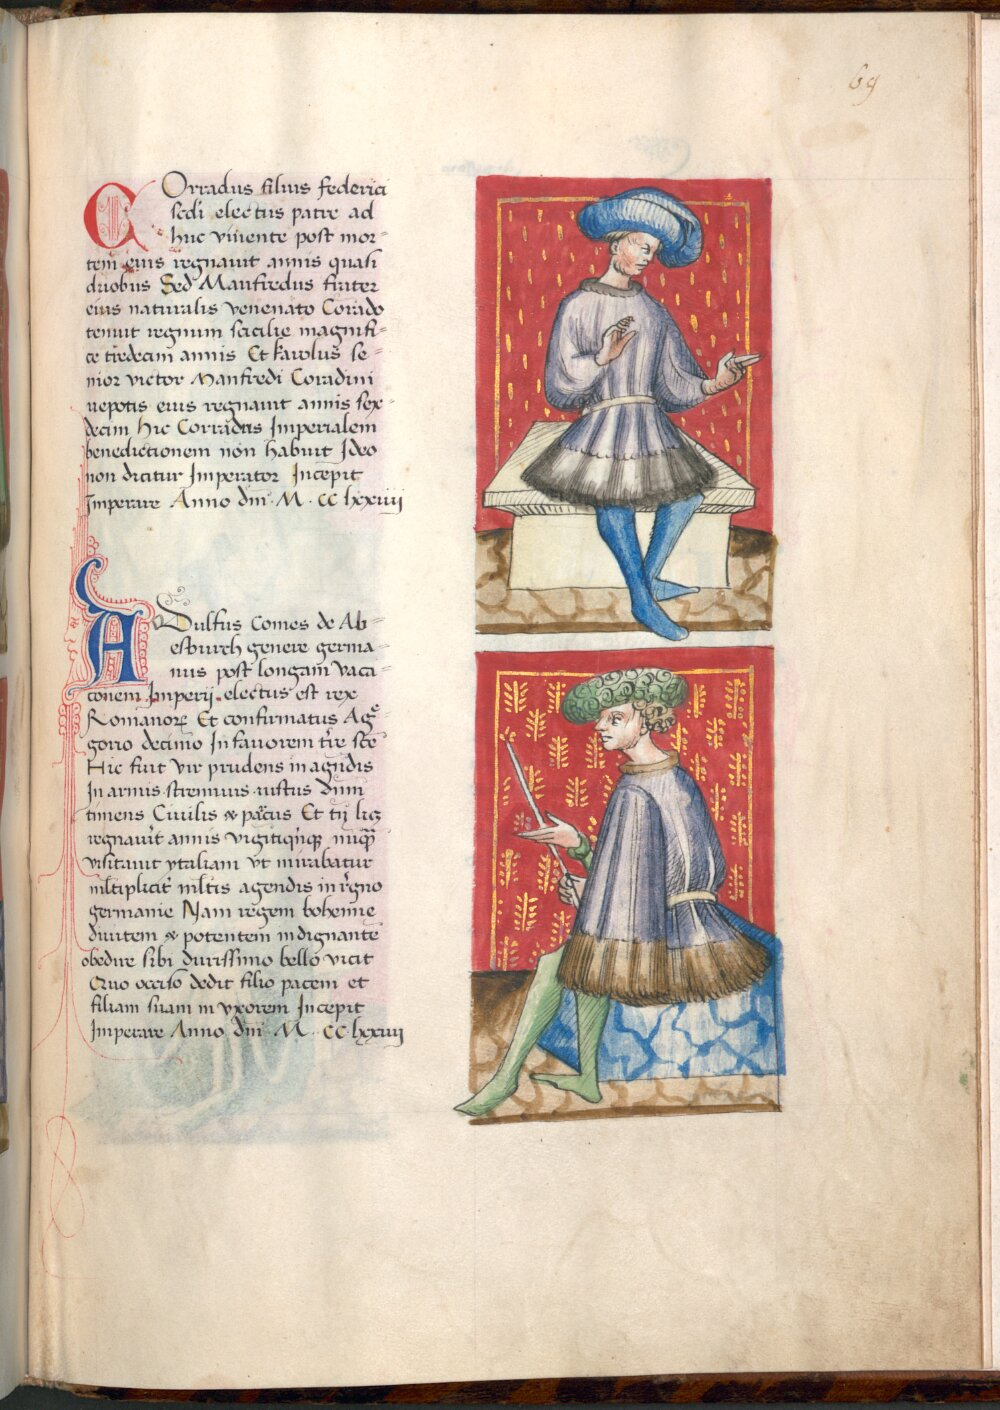 69
Corradus filius federici
scdi electus patre ad
huc viuente post mor-
tem eius regnauit annis quasi
duobus Sed Manfredus frater
eius naturalis venenato Corado
tenuit regnum scicilie magnifi-
ce tredecim annis Et karolus se-
nior victor Manfredi Coradini
nepotis eius regnauit annis sex-
decim Hic Corradus Imperialem
benedictionem non habuit Ideo
non dicitur Imperator Incepit
Imperare Anno dni M CC lxxiiii
Adulfus Comes de Ab-
esburch genere germa-
nus post longam vaca-
tionem Imperij electus est rex
Romanorꝝ Et confirmatus A
gorio decimo In fauorem tre scte
Hic fuit vir prudens in agendis
In armis strenuus iustus dnm
timens Ciuilis & pacus Et
regnauit annis
visitauit ytaliam vt mirabatur
multis agendis in regno
germanie Nam regem bohemie
diuitem & potentem indignante
obedire sibi durissimo bello vicit
Quo occiso dedit filio pacem et
filiam suam in vxorem Incepit
Imperare Anno dni M CC lxxiiij